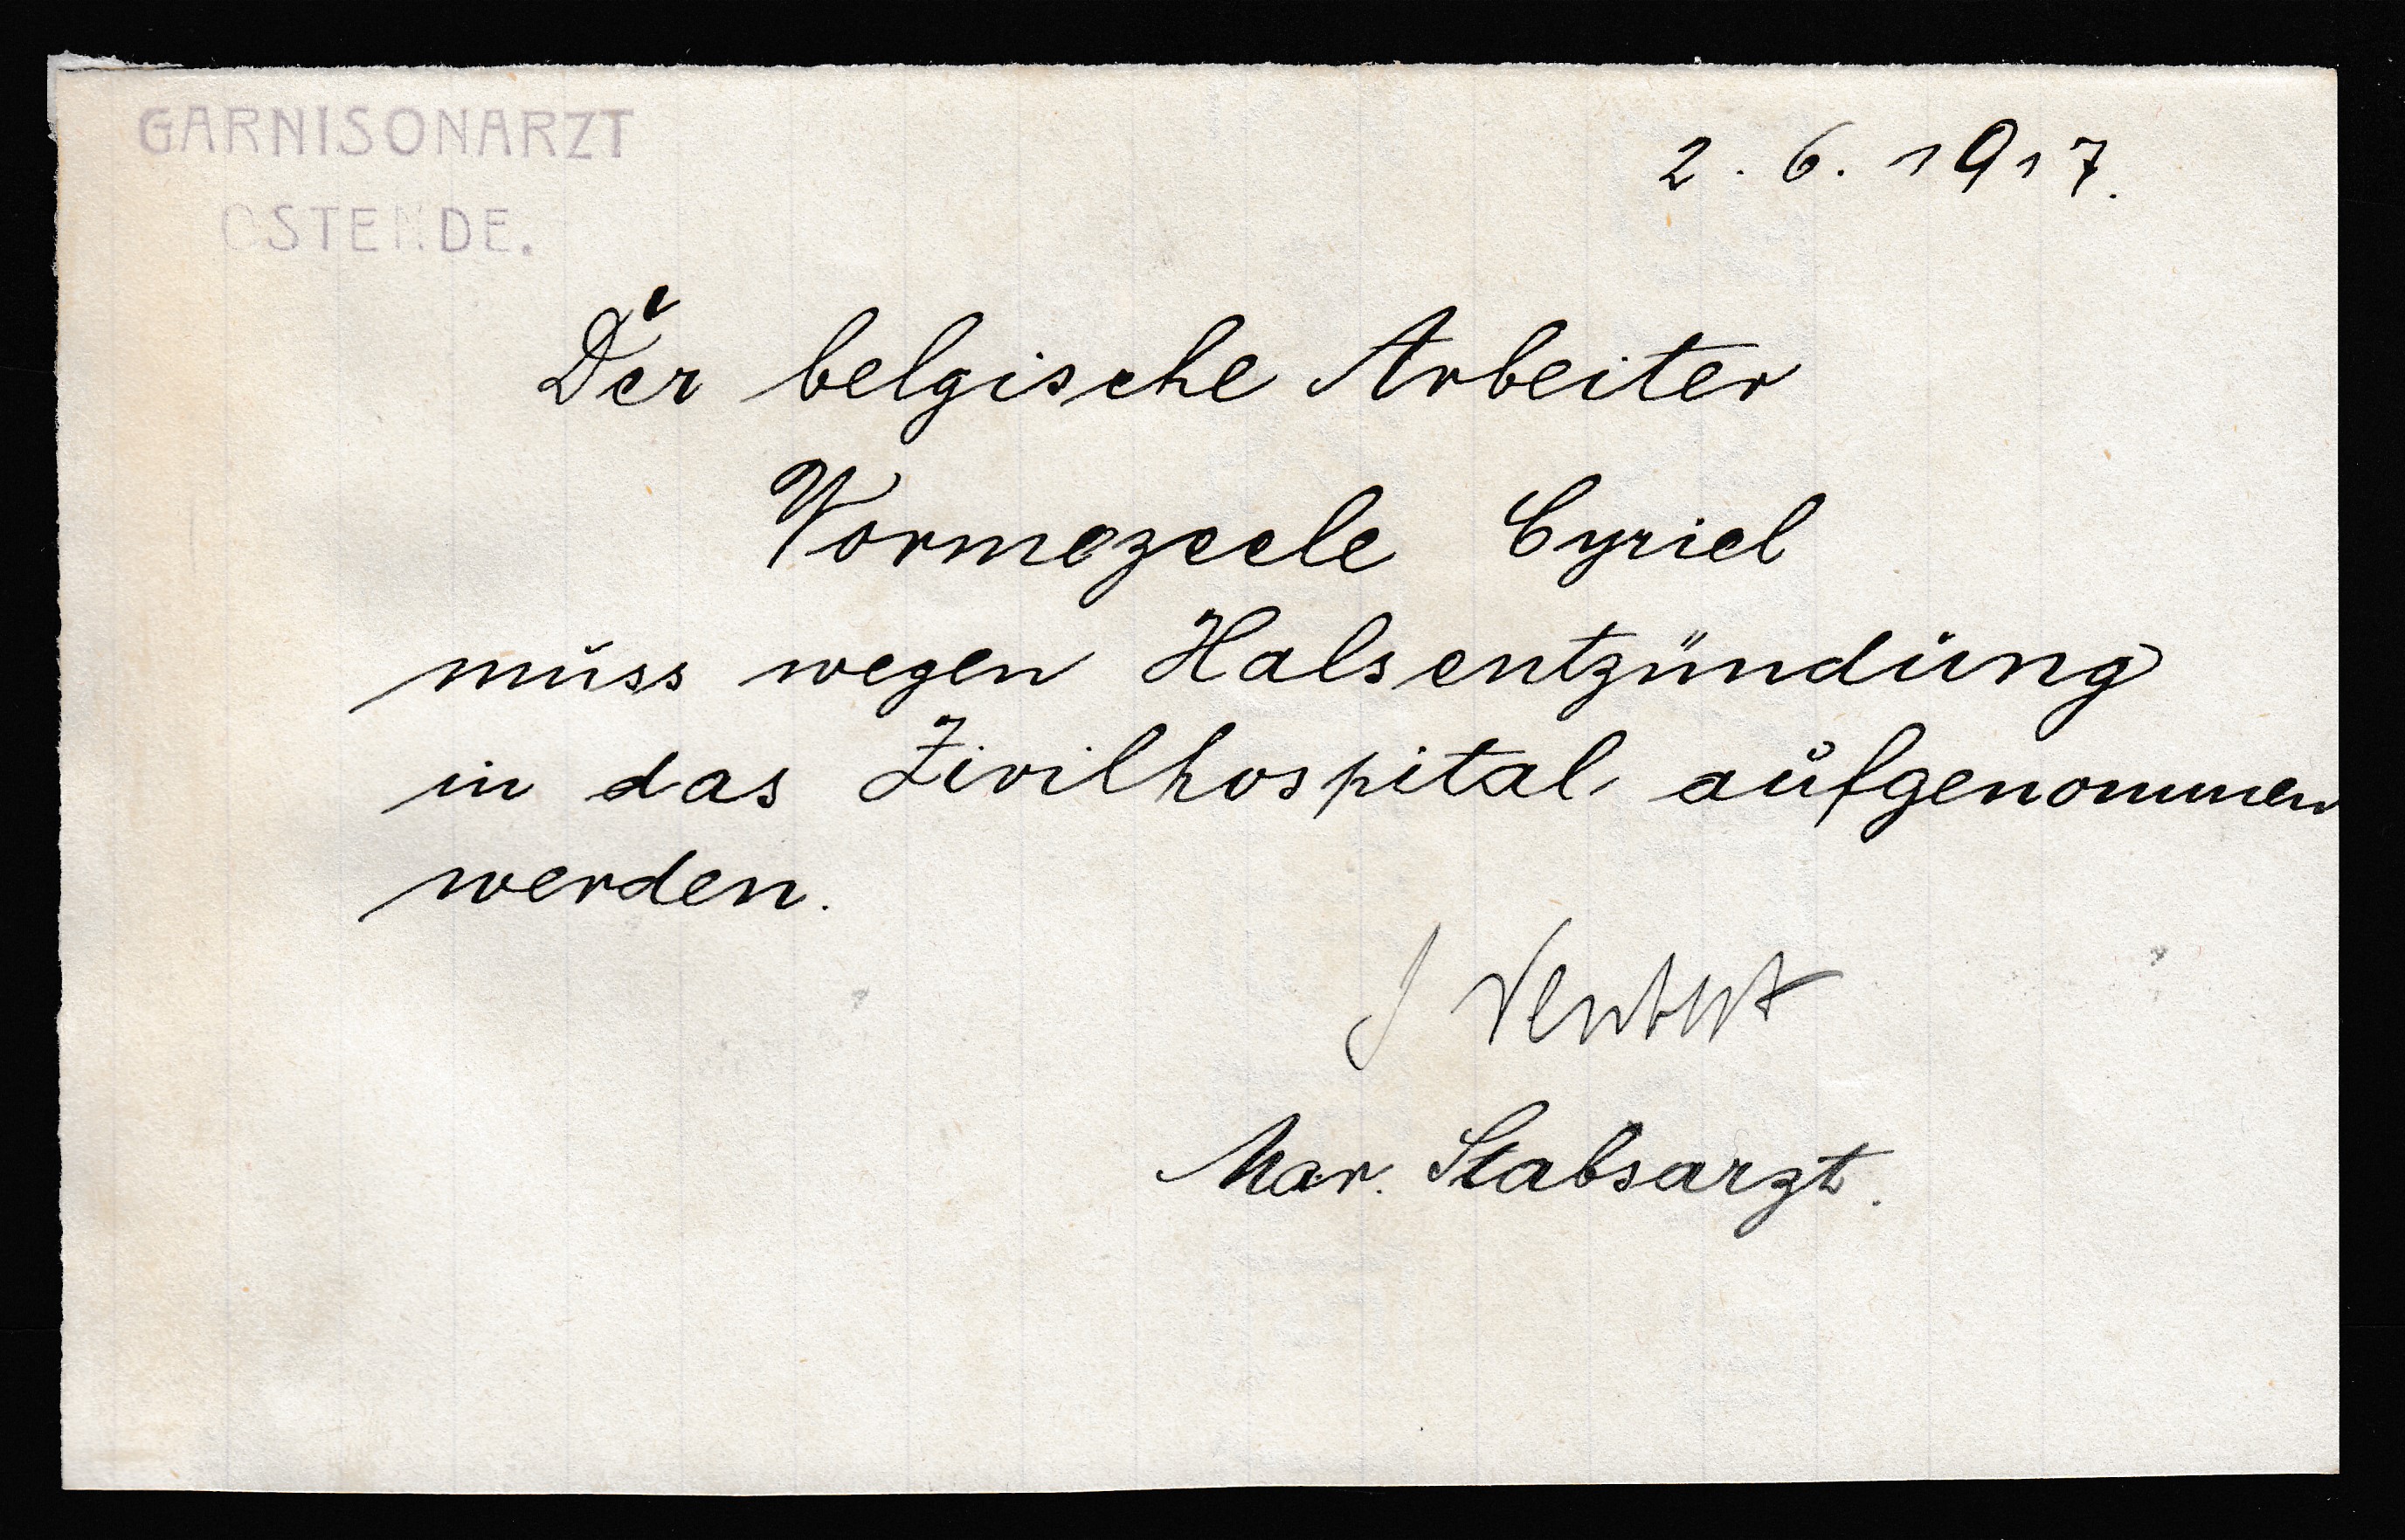 GARNISONARZT
OSTENDE.
2. 6. 1917.
Der belgische Arbeiter
Vormezeele Cyriel
muss wegen Halsentzündung
in das Zivilhospital aufgenommen
werden.
Mar. Stabsarzt.